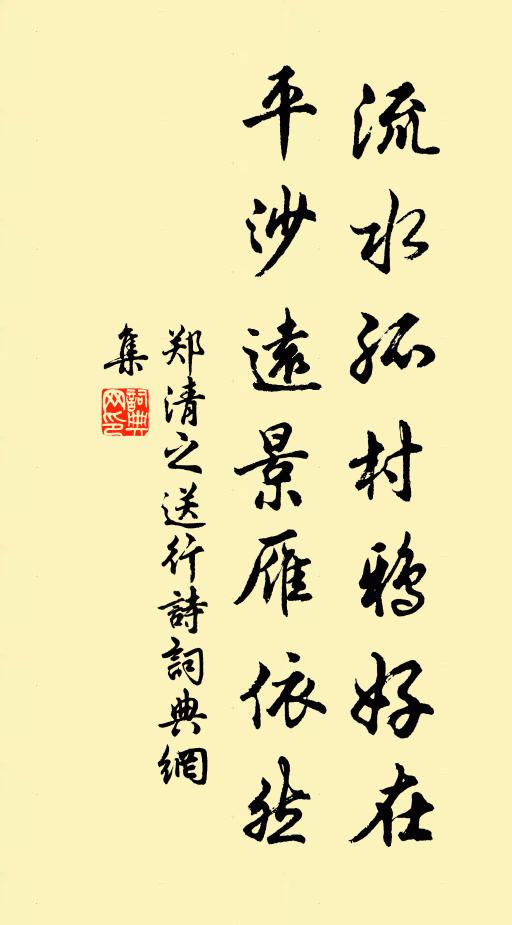 流水孤村鴉好在
平沙遠景雁依然
郑清之送行詩詞典網
集
詞典
网印